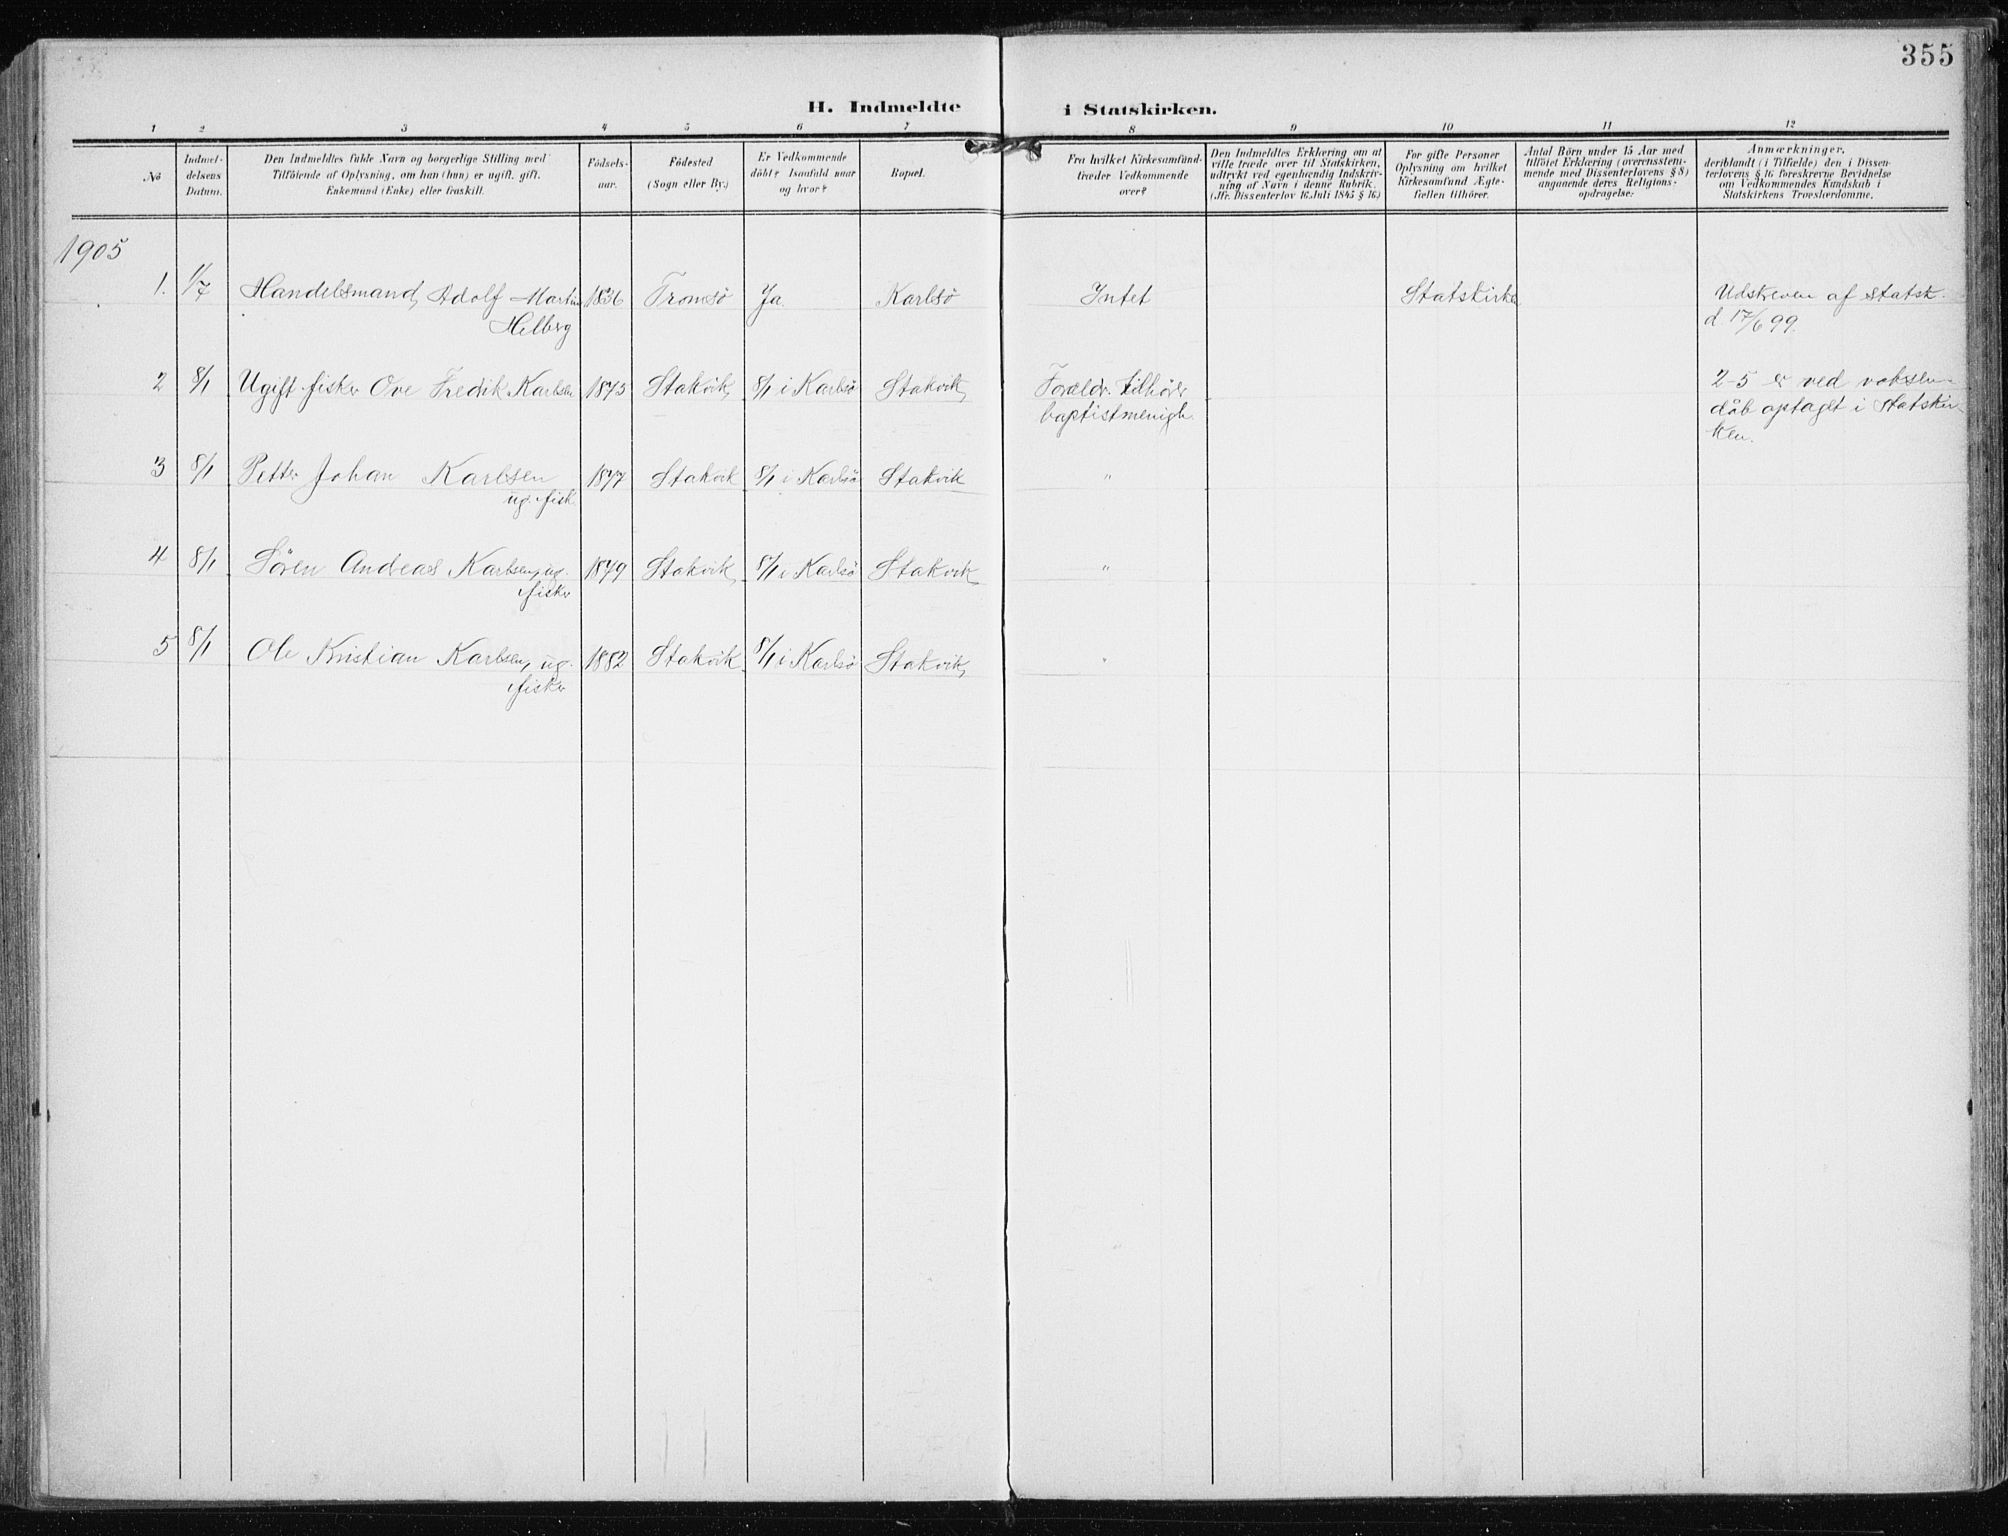 355
H. Indmeldte i Statskirken.
1 2 3 4 5 6 7 8 9 10 11 12
No
Indmel-
delsens
Datum.
Den Indmeldtes fulde Navn og borgerlige Stilling med
Tilföiende af Oplysning, om han (hun) er ugift, gift,
Enkemand (Enke) eller fraskilt.
Födsels-
aar.
Födested
(Sogn eller By.)
Er Vedkommende
döbt? Isaafald naar
og hvor?
Bopæl.
Fra hvilket Kirkesamfund
træder Vedkommende
over?
Den Indmeldtes Erklæring om at
ville træde over til Statskirken,
udtrykt ved egenhændig Indskriv-
ning af Navn i denne Rubrik.
(Jfr. Dissenterlov 16 Juli 1845 § 16)
For gifte Personer
Oplysning om hvilket
Kirkesamfund Ægte-
fællen tilhörer.
Antal Börn under 15 Aar med
tilföiet Erklæring (overensstem-
mende med Dissenterlovens § 8)
angaaende deres Religions-
opdragelse:
Anmærkninger,
deriblandt (i Tilfælde) den i Dissen-
terlovens § 16 foreskrevne Bevidnelse
om Vedkommendes Kundskab i
Statskirkens Troesherdomme.
1905
1. 1/7 Handelsmand, Adolf Martin 1836 Tromsö Ja Karlsö Intet Statskirke Udskreven af Statsk.
Helberg d. 17/6 99.
2 8/1 Ugift fisker Ove Fredik Karlsen 1875 Stakvik 8/1 i Karlsö Stakvik Foreldr. tilhörer 2-5 er ved voksen-
baptistmenigh. dåb optaget i Statskir-
ken.
3 8/1 Petter Johan Karlsen 1877 Stakvik 8/1 i Karlsö Stakvik "
ug. fisk.
4 8/1 Sören Andreas Karlsen, ug. 1879 Stakvik 8/1 i Karlsö Stakvik "
fisker
5 8/1 Ole Kristian Karlsen, ug. 1882 Stakvik 8/1 i Karlsö Stakvik "
fisker